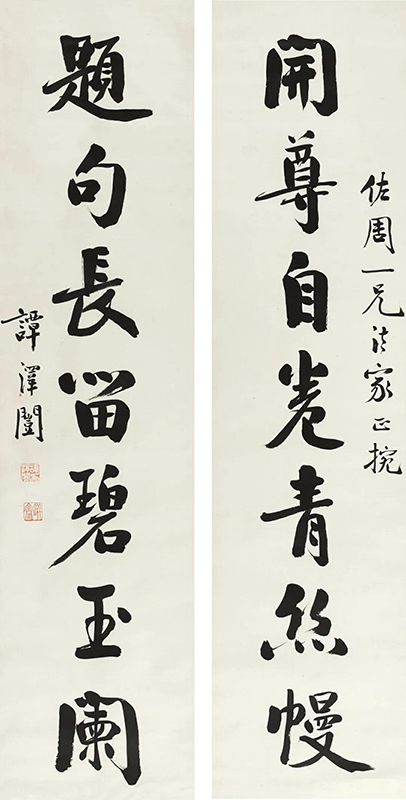 佐周一兄法家正捥
開尊自卷青絲幔
題句長留碧玉闌
譚澤闓